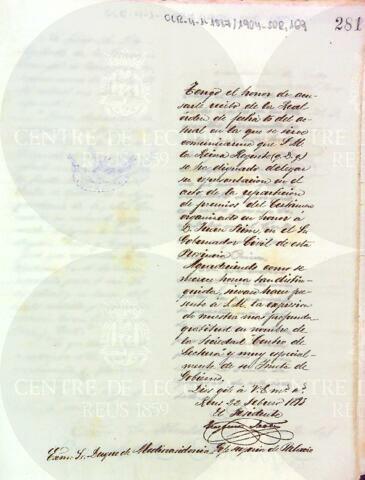 CLR-4-1-1887/1904-S08,169
281
Tengo el honor de acu-
sarle recibo de la Real
órden de fecha 16 del ac-
tual en la que se sirve
comunicarme que S.M.
la Reina Regente (q.D.g)
se ha dignado delegar
su representacion en el
acto de la reparticion
de premios del Certámen
organizado en honor á
D. Juan Prim, en el Sr.
Gobernador Civil de esta
Provincia.
Agradeciendo como se
merece honra tan distin-
guida, sirvase hacer pre-
sente á S.M. la expresion
de nuestra mas profunda
gratitud en nombre de
la Sociedad Centro de
Lectura y muy especial-
mente de su Junta de
Gobierno.
Dios gde á V.E. ms. as.
Reus 22 Febrero
El Presidente
Exmo. Sr. Duque de Medinasidonia
CENTRE DE LECTURA
REUS 1859
CENTRE DE LECTURA
REUS 1859